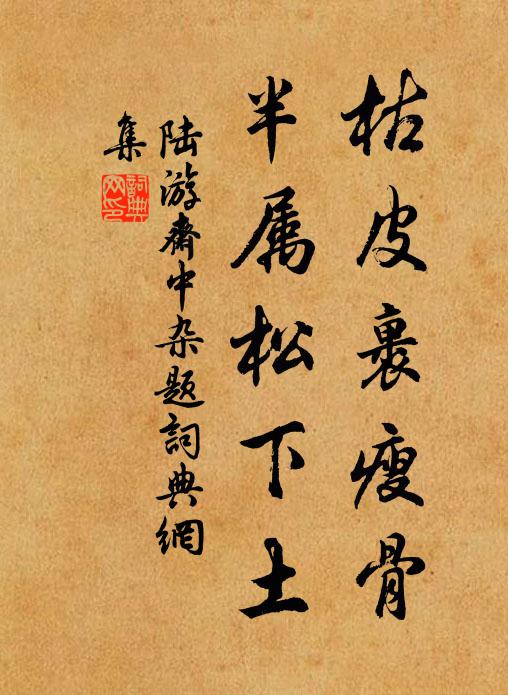 枯皮裹瘦骨
半属松下土
陆游斋中杂题詞典網
集
詞典网印